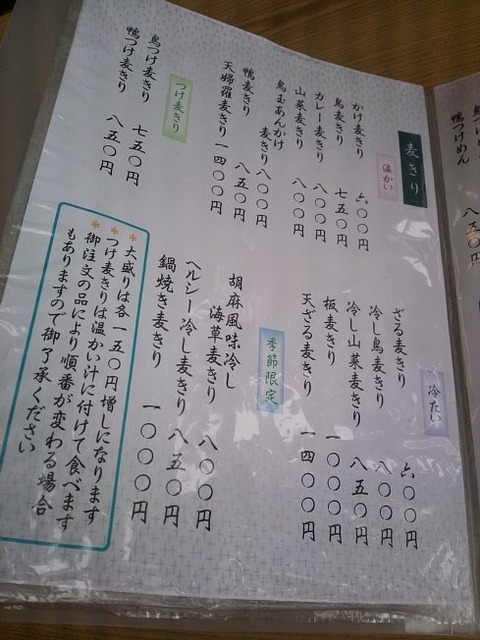 麦きり
温かい
かけ麦きり 六〇〇円
鳥麦きり 七五〇円
カレー麦きり 八〇〇円
山菜麦きり 八〇〇円
鳥玉あんかけ
麦きり 八〇〇円
鴨麦きり 八五〇円
天婦羅麦きり 一四〇〇円
つけ麦きり
鳥つけ麦きり 七五〇円
鴨つけ麦きり 八五〇円
冷たい
ざる麦きり 六〇〇円
冷し鳥麦きり 八〇〇円
冷し山菜麦きり 八五〇円
板麦きり 一〇〇〇円
天ざる麦きり 一四〇〇円
季節限定
胡麻風味冷し
海草麦きり 八〇〇円
ヘルシー冷し麦きり 八五〇円
鍋焼き麦きり 一〇〇〇円
＊大盛りは各一五〇円増しになります
＊つけ麦きりは温かい汁に付けて食べます
＊御注文の品により順番が変わる場合
もありますので御了承ください
鴨つけめん 八五〇円